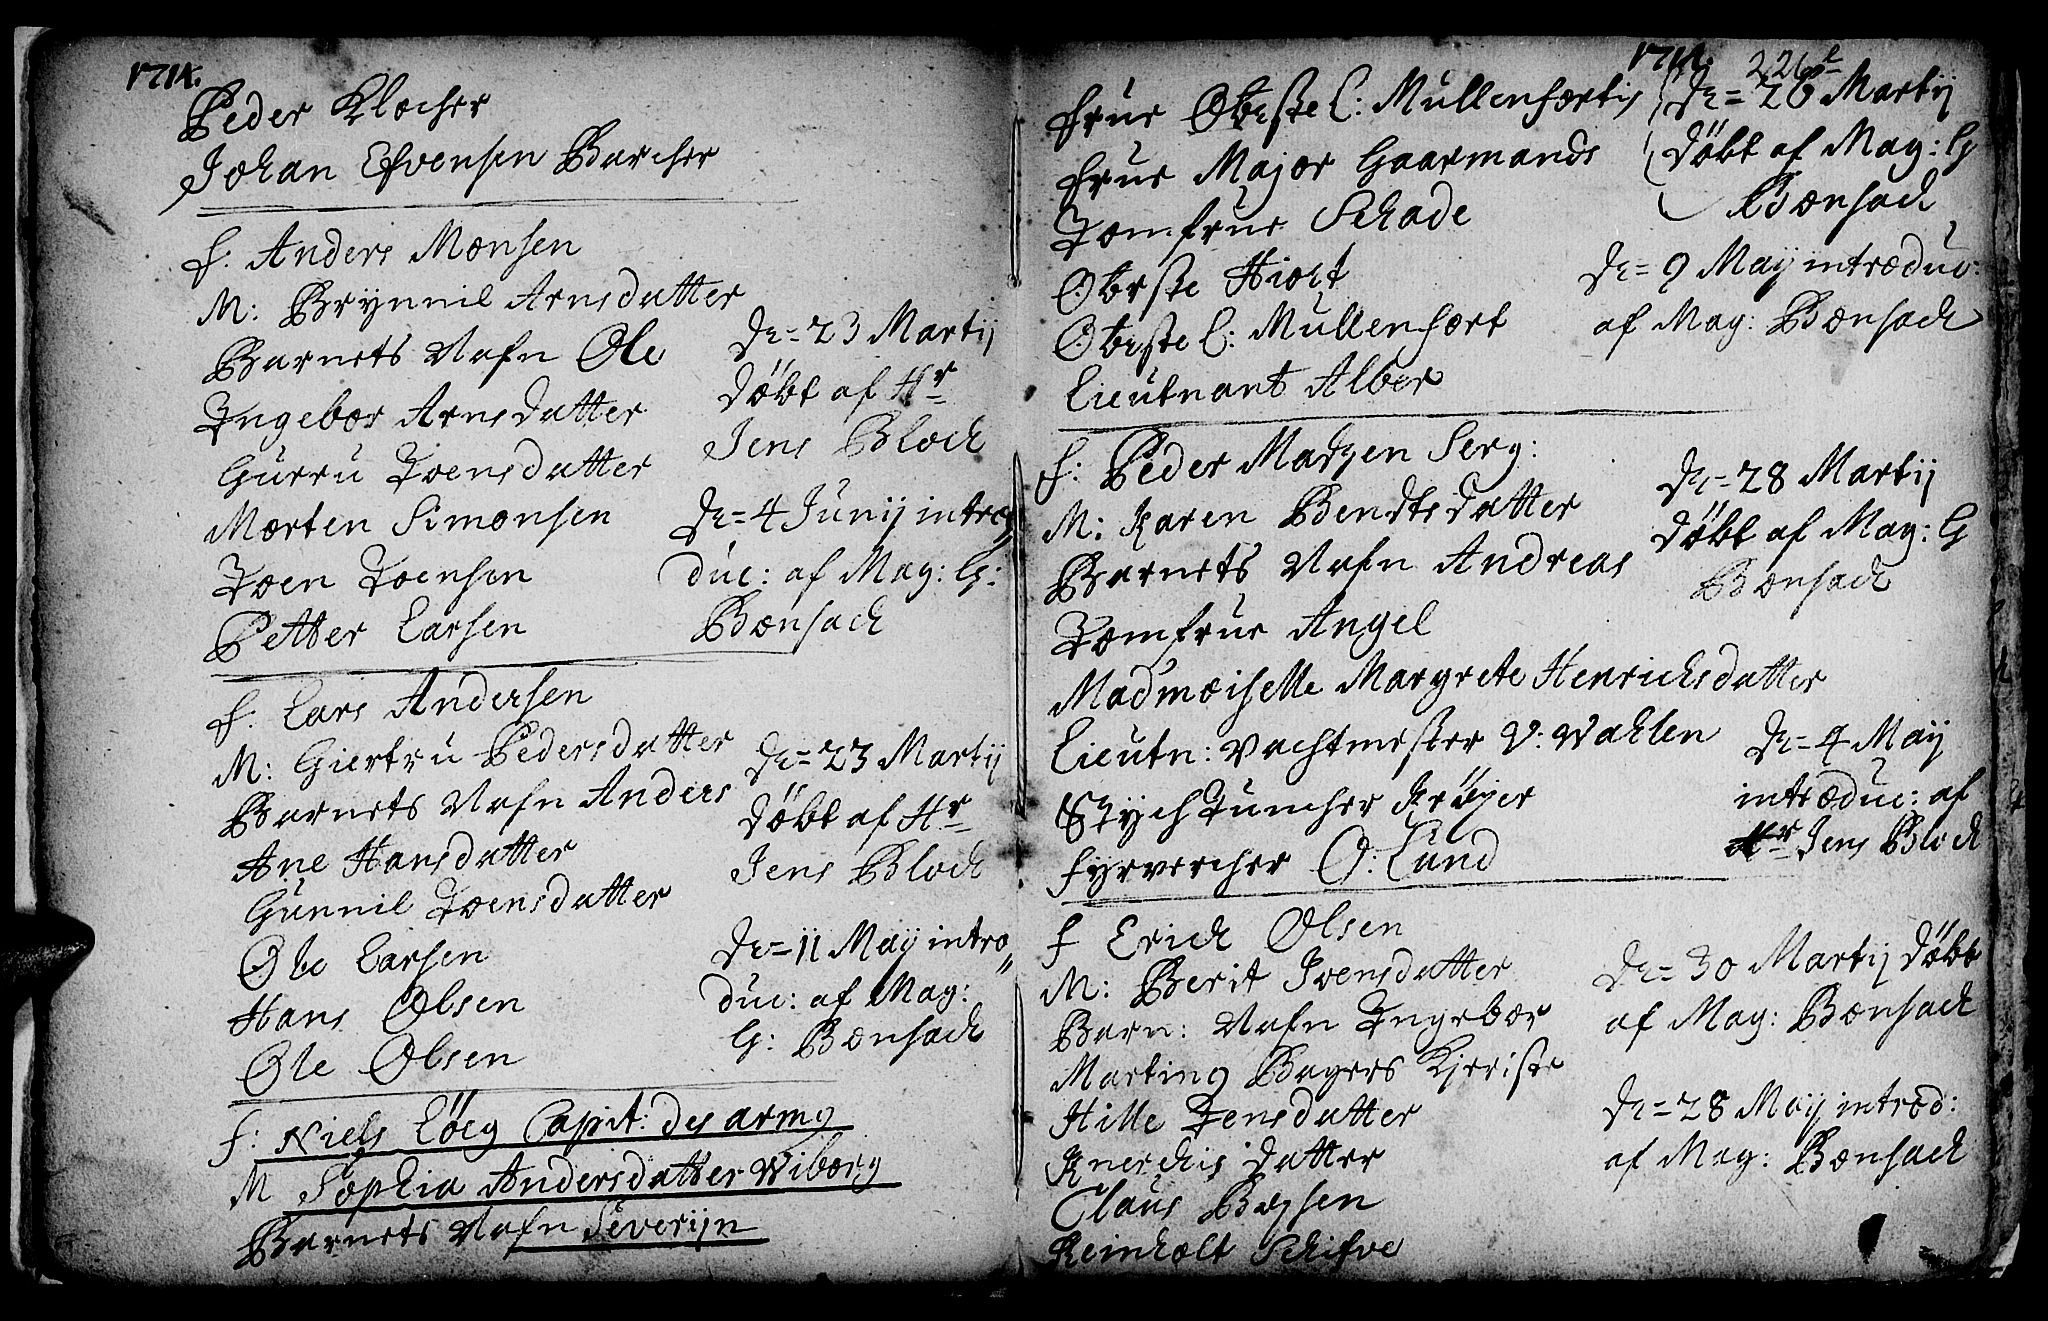 1714.
Peder Klocher
Johan Efvensen Barcher
f. Anders Monsen
M: Brynnil Arnsdatter
Barnets Nafn Ole
Ingebor Arnsdatter
Gurru Joensdatter
Morten Simonsen
Joen Joensen
Petter Larsen
D: = 23 Martij
döbt af Hr
Jens Block
D: = 4 Junij intro
duc: af Mag: G:
Bonsach
f. Lars Andersen
M: Giertru Pedersdatter
Barnets Nafn Anders
Ane Hansdatter
Gunnil Joensdatter
Ole Larsen
Hans Olsen
Ole Olsen
D: = 23 Martij
döbt af Hr
Jens Block
D: = 11 Maij intro
duc: af Mag:
G: Bonsach
f: Niels Löeg Capit: des arm
M Sophia Andersdatter Wiborg
Barnets Nafn Severijn
1714. 226
Frue Obeste L: Mullenforts
Frue Major Gaarmands
Jomfrue Schade
Obrste Hiort
Obeste L: Mullenfort
Lieutnant Alber
D: = 26 Martij
döbt af Mag: G
Bonsach
D: = 9 Maij introduc:
af Mag: Bonsach
f: Peder Madzen Serg:
M: Karen Bendtsdatter
Barnets Nafn Andreas
Jomfrue Angel
Madmoiselle Margrete Henrichsdatter
Lieutn: Vachtmester V: Vahlen
Stÿchjuncher Kröÿer
Fyrvercher O: Lund
D: = 28 Martij
döbt af Mag: G
Bonsach
D: = 4 Maij
introduc: af
Hr Jens Block
f Erich Olsen
M: Berit Joensdatter
Barn: Nafn Ingebor
Barting Bagers
Hille Jensdatter
datter
Claus Boysen
Reinholt Schifve
D: = 30 Martij döbt
af Mag: Bonsach
D: = 28 Maij introd:
af Mag: Bonsach